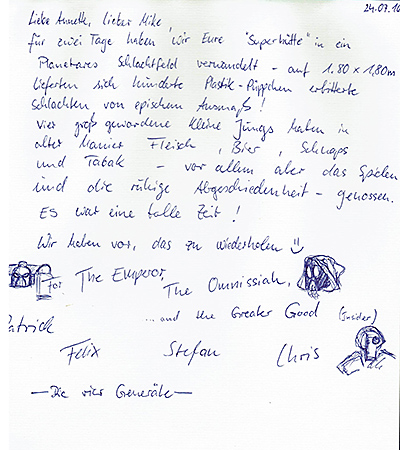 24.07.10
Liebe Annette, lieber Mike,
für zwei Tage haben wir Eure "Superhütte" in ein
Planetares Schlachtfeld verwandelt - auf 1.80 x 1,80m
lieferten sich hunderte Plastik-Püppchen erbitterte
Schlachten von epischem Ausmaß!
Vier groß gewordene kleine Jungs haben in
alter Manier Fleisch, Bier, Schnaps
und Tabak - vor allem aber das Spielen
und die ruhige Abgeschiedenheit - genossen.
Es war eine tolle Zeit!
Wir haben vor, das zu wiederholen
For The Emperor,
The Omnissiah,
... and the Greater Good (Insider)
Patrick
Felix Stefan Chris
- Die vier Generäle -